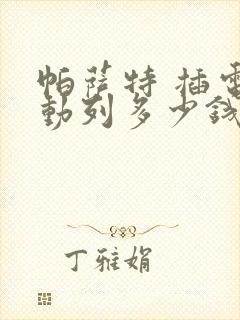 帕萨特 插电
动列多少钱
丁雅娟